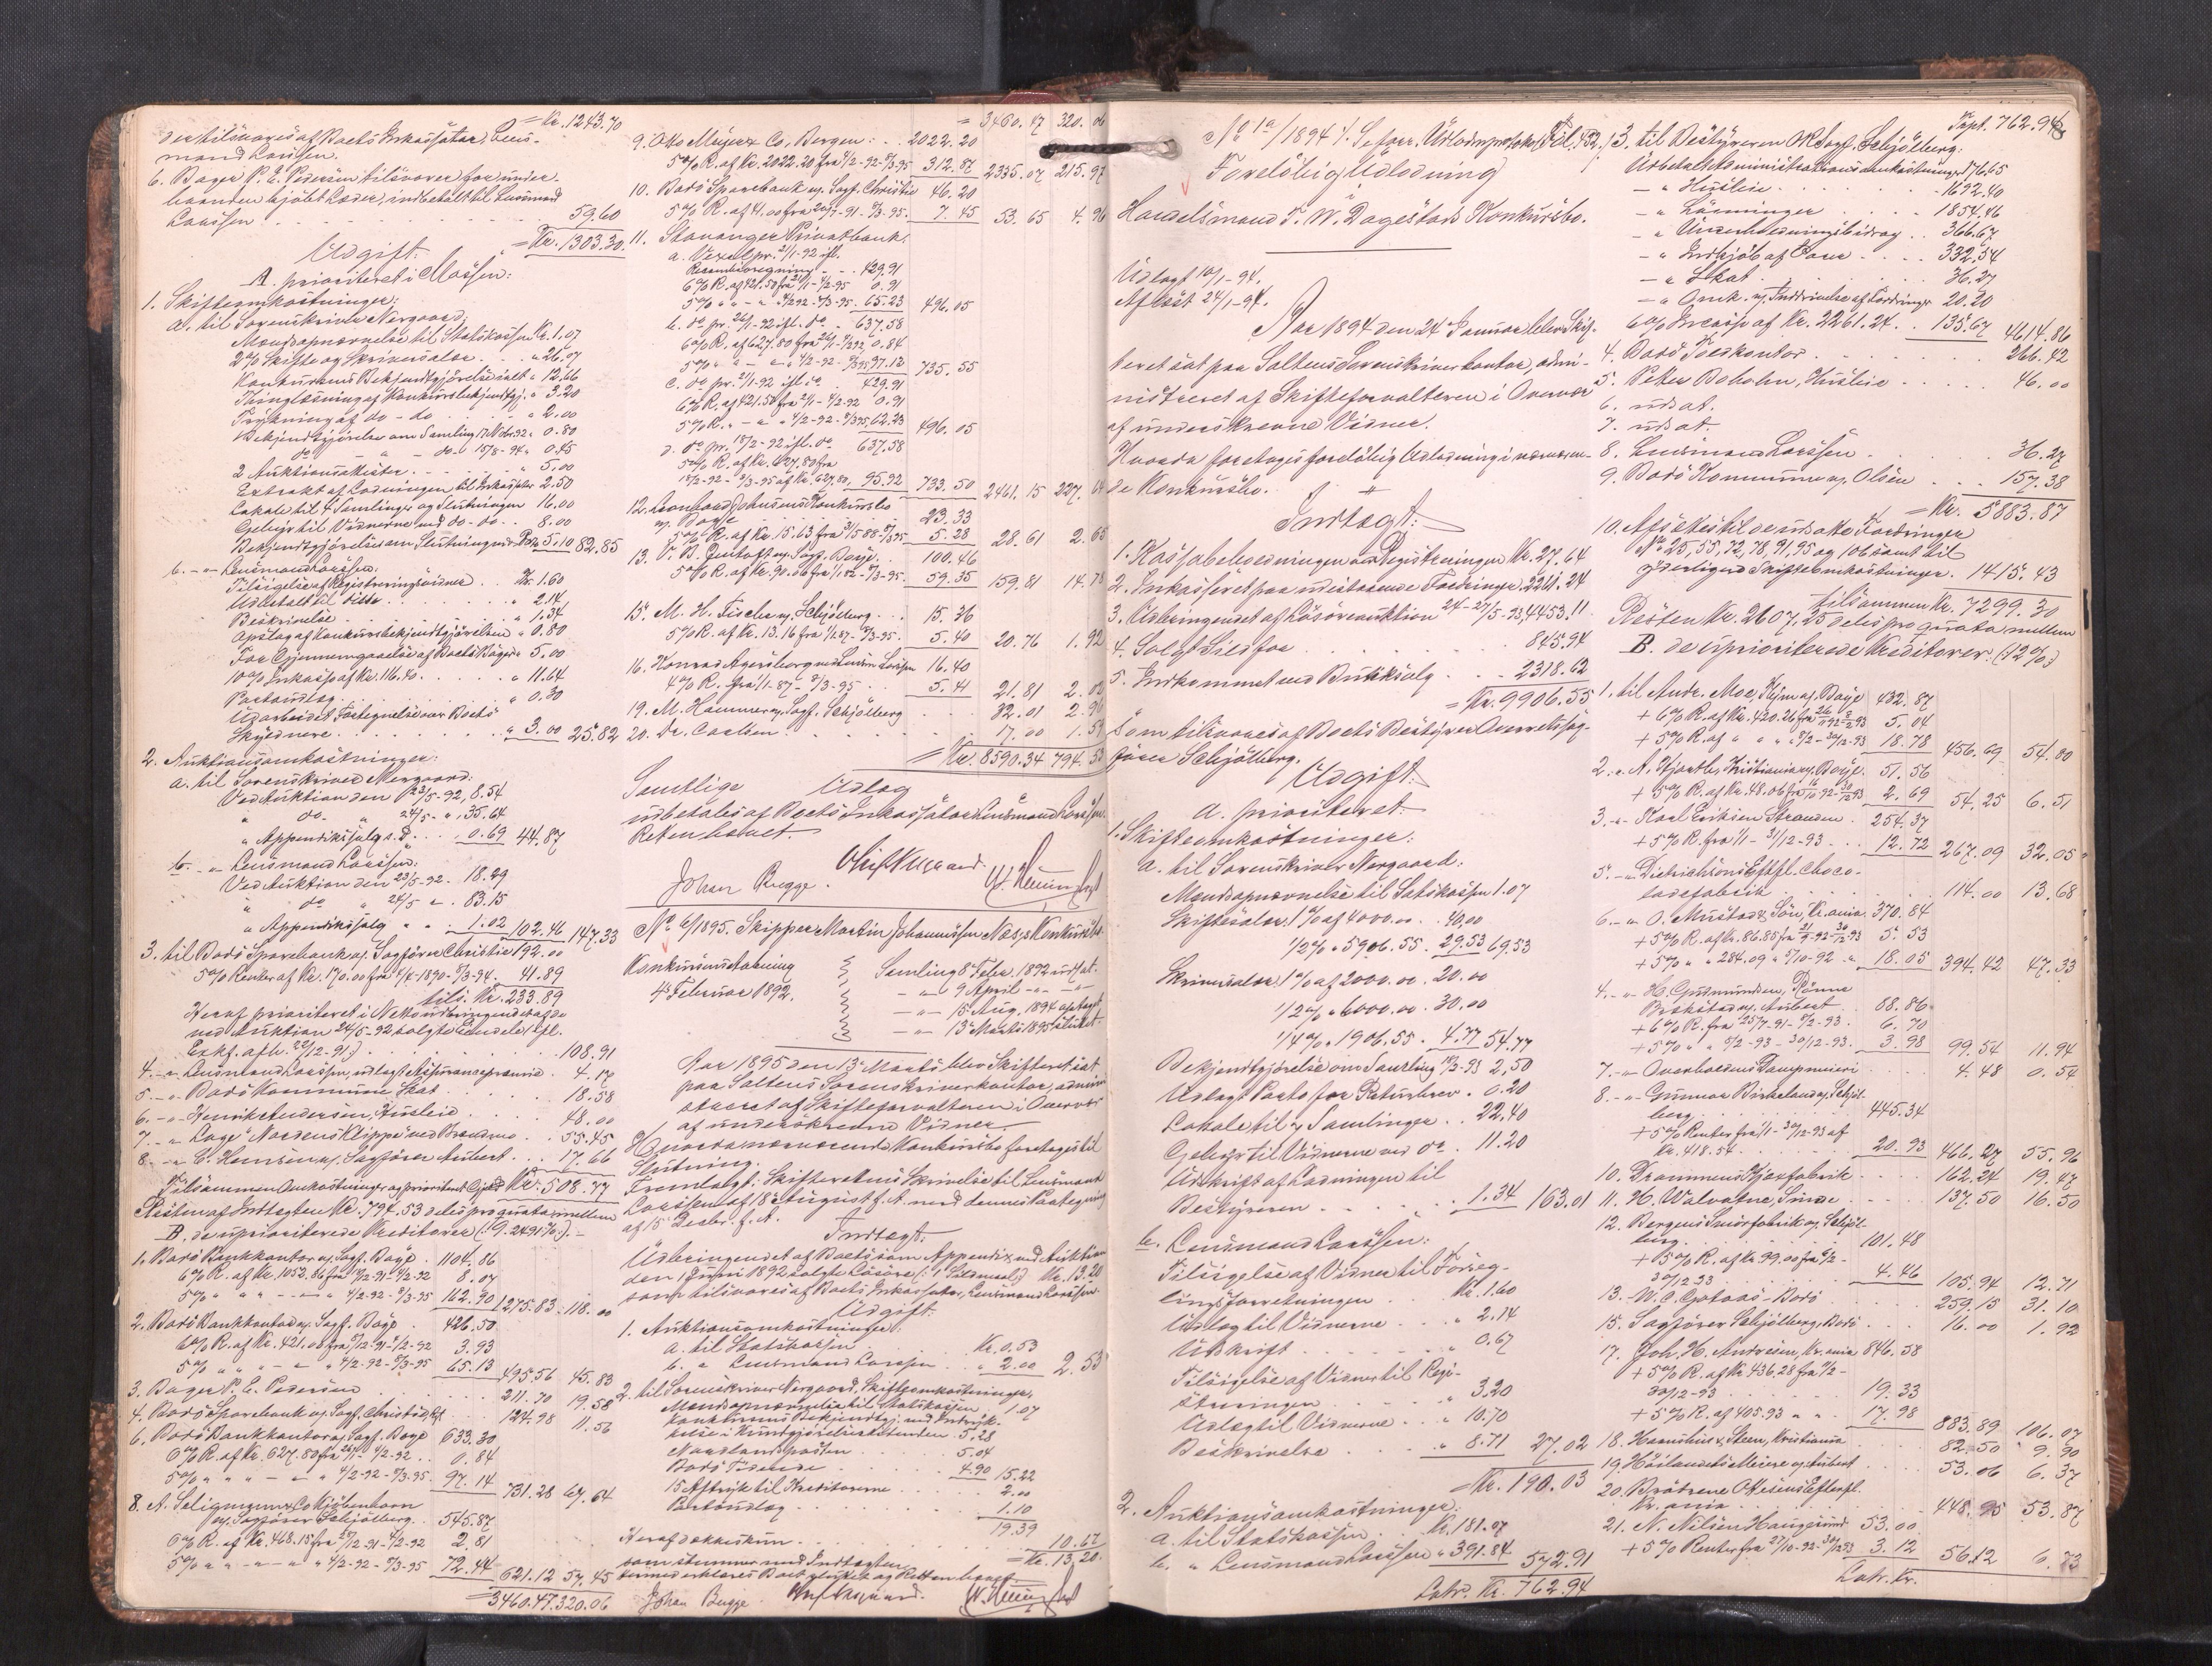 = Kr. 1243.70
der tilsvares af Boets Inkassator, Lens-
mand Larssen.
6. Bager P. E. Pedersen tilsvarer for under-
haanden kjöbt Löser, indbetalt til Lensmand
Larssen . . . 59.60
= Kr. 1303.30
Udgift:
A. prioriteret i Massen:
1. Skifteomkostninger:
a. til Sorenskriver Norgaard:
Mandsopnævnelse til Statskassen Kr. 1.07
2% Skifte og Skriversalær . . . " 26.07
Konkursens Bekjendtgjörelse ialt " 12.66
Thinglæsning af Konkursbekjendtgj. " 3.20
Trykning af do - do . . . " 2.00
Bekjendtgjörelse om Samling 17 Novbr. 92 " 0.80
do - " - do - 15/8 - 94 " 0.45
2 Auktionsattester . . . " 5.00
Extrakt af Ladningen til Inkassator 2.50
Lokale til 4 Samlinger og Slutningen 16.00
Gebyr til Vidnerne ved do - do . . 8.00
Bekjendtgjörelse om Slutningen 5.10 82.85
b. - " - Lensmand Larssen:
Tilsigelse af Registreringsvidner . . Kr. 1.60
Udbetalt til disse . . . " 2.14
Beskrivelse . . . " 1.34
Opslag af Konkursbekjendtgjörelsen " 0.80
For Gjennemgaaelse af Boets Böger " 5.00
10% Inkasso af Kr. 116.40 . . " 11.64
Portoudlæg . . . " 0.30
Udarbeidet Fortegnelse over Boets
Skyldnere . . . " 3.00 25.82
2. Auktionsomkostninger:
a. til Sorenskriver Norgaard:
Ved Auktion den 23/5 - 92, 8.54
" do - " 24/5 - " , 35.64
" Appendixsalg s. D. . . , 0.69 44.87
b. - " - Lensmand Larssen:
Ved Auktion den 23/5 - 92 . 18.29
" do " 24/5 - " . 83.15
" Appendixsalg " " . 1.02 102.46 147.33
3. til Bodö Sparebank v. Sagförer Christie 192.00
5% Renter af Kr. 170.00 fra 4/4 - 1890 - 8/3 - 94 . 41.89
tils. Kr. 233.89
Heraf prioriteret i Netto Udbringendet af de
ved Auktion 24/5 - 92 solgte Eiendele (efl.
Exkf. afh. 22/12 - 91) . . . 108.91
4. - " - Lensmand Larssen, udlagt Assurancepræmie . 4.17
5. - " - Bodö Kommune, Skat . . . 18.58
6. - " - Henrik Andersen, Husleie . . . 48.00
7. - " - Loge "Nordens Klippe" ved Brandmo . . 55.45
8. - " - C. Hansen v. Sagförer Aubert . . . 17.66
Tilsammen Omkostninger og prioriteret Gjæld Kr. 508.77
Resten af Indtægten Kr. 794.53 deles pro quota mellem
B. de uprioriterede Kreditorer (: 9.2491%:) . -
1. Bodö Bankkontor v. Sagf. Bøye . 1104.86
6% R. af Kr. 1052.86 fra 19/12 - 91 - 4/2 - 92 8.07
5% " " - " - " 4/2 - 92 - 8/3 - 95 162.90 1275.83 118.00
2. Bodö Bankkontor v. Sagf. Bøye . 426.50
6% R. af Kr. 421.00 fra 5/12 - 91 - 4/2 - 92 3.93
5% " " " - " " 4/2 - 92 - 8/3 - 95 65.13 495.56 45.83
3. Bager P. E. Pedersen . . . 211.70 19.58
4. Bodö Sparebank v. Sagf. Christie, Rest . . 124.98 11.56
6. Bodö Bankkontor v. Sagf. Bøye 633.30
6% R. af Kr. 627.80 fra 26/1 - 4/2 - 92 . . 0.84
5% " " " - " " 4/2 - 92 - 8/3 - 95 . 97.14 731.28 67.64
8. A. Seligmann & Co Kjöbenhavn
v. Sagförer Schjölberg . . 545.87
6% R. af Kr. 468.15 fra 29/12 - 91 - 4/2 - 92 2.81
5% " " - " - " " 4/2 - 92 - 8/3 - 95 72.44 621.12 57.45
= 3460.47. 320.06
= 3460.47 320.06
9. Otto Meyer & Co, Bergen: . . 2022.20
5% R. af Kr. 2022.20 fra 4/2 - 92 - 8/3 - 95 312.87 2335.07 215.97
10. Bodö Sparebank v. Sagf. Christie 46.20
5% R. af 41.00 fra 20/7 - 91 - 8/3 - 95 . 7.45 53.65 4.96
11. Stavanger Privatbank:
a. Vexel pr. 21/1 - 92 ifl.
Recambioregning . . . 429.91
6% R. af 421.50 fra 21/1 - 4/2 - 95 0.91
5% " " - " " 4/2 92 - 8/3 - 95 . 65.23 496.05
b. do pr. 26/1 - 92 ifl. do . 637.58
6% R. af 627.80 fra 26/1 - 4/2 92 0.84
5% " " - " " 4/2 - 92 - 8/3 95 97.13 735.55
c. do pr. 21/1 - 92 ifl. do . 429.91
6% R. af 421.50 fra 21/1 - 4/2 - 92 0.91
5% R. " - " " 4/2 - 92 - 8/3 95, 62.23 496.05
d. do pr. 18/2 - 92 ifl. do 637.58
5% R. af Kr. 627.80 fra
18/2 - 92 - 8/3 - 95 af Kr. 627.80, 95.92 733.50 2461.15 227.64
12. Leonhard Johnsens Konkursbo
v. Bøye . . . 23.33
5% R. af Kr. 15.63 fra 31/5 88 - 8/3 95 5.38 28.61 2.65
13. V. B. Qvistoft v. Sagf. Bøye . 100.46
5% R. af Kr. 90.06 fra 1/1 82 - 8/3 - 95 . 59.35 159.81 14.78
15. M. H. Fischer v. Schjölberg . . . 15.36
5% R. af Kr. 13.16 fra 1/1 87 - 8/3 - 95 . 5.40 20.76 1.92
16. Konrad Agersborg ved Lensm. Larssen 16.40
4% R. fra 1/1 - 87 - 8/3 - 95 . . 5.41 21.81 2.02
19. M. Hammer v. Sagf. Schjölberg . . . 32.01 2.96
20. Dr. Carlsen . . . 17.00 1.57
= Kr. 8590.34 794.53
Samtlige Udlæg
udbetales af Boets Inkassator Lensmand Larssen.
Retten hævet.
Johan Bugge.
No 6/1895. Skipper Martin Johannessen Næss Konkursbo.
Konkursaabning
4de Februar 1892.
Samling 8 Febr. 1892 udsat.
- " - 9 April - " - - " -
- " - 15 Aug. 1894 optaget
- " - 13de Marts 1895 sluttet.
Aar 1895 den 13de Marts blev Skifteret sat
paa Saltens Sorenskriverkontor, admini-
streret af Skifteforvalteren i Overvær
af underskrevne Vidner.
Hvorda nærværende Konkursbo foretoges til
Slutning.
Fremlagt: Skifterettens Skrivelse til Lensmand
Larssen af 18de August f. A. med dennes Paategning
af 15 Decbr. f. A.
Indtægt:
Udbringendet af Boets som Appendix ved Auktion
den 1 Juni 1892 solgte Lösöre (: 1 Sildenot :) Kr. 13.20
som tilsvares af Boets Inkassator, Lensmand Larssen.
Udgift:
1. Auktionsomkostninger:
a. til Statskassen . . . Kr. 0.53
b. " Lensmand Larssen . . " 2.00 2.53
2. til Sorenskriver Norgaard, Skifteomkostninger,
Mandsopnævnelse til Statskassen 1.07
Konkursens Bekjendtgj. ved Indryk-
kelse i Kundgjörelsestidenden . 5.28
Nordlandsposten . . . 5.04
Bodö Tidende . . . 4.90 15.22
15 Aftryk til Kreditorerne . . . 2.00
Portoudlæg . . . 1.10
19.39
Heraf dækkes kun . . . 10.67
= Kr. 13.20.
som stemmer med Indtægten.
hermed erklæres Boet sluttet og Retten hævet.
Johan Bugge.
No 1a/1894 /. Se forr. Udlodnprotokol Fol. 432./
Foreløbig Udlodning
i
Handelsmand T. W. Dagestads Konkursbo.
Udlagt 10/1 - 94.
Afläst 24/1 - 94.
Aar 1894 den 24 Januar blev Skif-
teret sat paa Saltens Sorenskriverkontor, admi-
nistreret af Skifteforvalteren i Overvær
af underskrevne Vidner.
Hvorda foretoges foreløbig Udlodning i nærværen-
de Konkursbo.
Indtægt:
1. Kassabeholdningen ved Registreringen Kr. 27.64
2. Inkasseret paa udestaaende Fordringer 2261.24
3. Udbringendet af Lösöreauktion 24 - 27/5 - 93, 4453.11
4. Solgt Sild for . . . 845.94
5. Indkommet ved Butiksalg . . . 2318.62
= Kr. 9906.55
som tilsvares af Boets Bestyrer Overretssag-
förer Schjölberg.
Udgift:
a. prioriteret:
1. Skifteomkostninger:
a. til Sorenskriver Norgaard:
Mandsopnævnelse til Statskassen 1.07
Skiftesalær 1% af 4000.00 . . 40.00
1/2% " 5906.55 . 29.53 69.53
Skriversalær 1% af 2000.00 . 20.00
1/2% " 6000.00 . 30.00
1/4% " 1906.55 . 4.77 54.77
Bekjendtgjörelse om Samling 18/2 - 93 2.50
Udlagt Porto for Returbrev . 0.20
Lokale til 7 Samlinger . . 22.40
Gebyr til Vidnerne ved do . 11.20
Udskrift af Ladningen til
Bestyreren . . . 1.34 163.01
b. Lensmand Larssen:
Tilsigelse af Vidner til Forseg-
lingsforretningen . . Kr. 1.60
Udlæg til Vidnerne . . " 2.14
Udskrift . . . " 0.67
Tilsigelse af Vidner til Regi-
streringen . . . " 3.20
Udlæg til Vidnerne . . . " 10.70
Beskrivelse . . . " 8.71 27.02
= Kr. 190.03
2. Auktionsomkostninger:
a. til Statskassen . . Kr. 181.07
b. " Lensmand Larssen " 391.84 572.91
Latr. Kr. 762.94
Trspt. 762.94
3. til Bestyreren OR Sagf. Schjölberg:
Udbetalt Administrationsomkostninger 176.65
- " Husleie . . . 1692.40
- " Lönninger . . . 1854.46
- " Underholdningsbidrag . . 366.67
- " Indkjöb af Varer . . . 332.54
- " Skat . . . 36.27
- " Omk. v. Inddrivelse af Fordringer 20.20
6% Incasso af Kr. 2261.24 . . 135.67 4614.86
4. Bodö Toldkontor . . . 266.42
5. Petter Boholm, Husleie . . . 46.00
6. udsat.
7. udsat.
8. Lensmand Larssen . . . 36.27
9. Bodö Kommune v. Olsen . . . 157.38
= Kr. 5883.87
10. Afsættes til de udsatte Fordringer
No 25, 55, 72, 78, 91, 95 og 106 samt til
yderligere Skifteomkostninger . 1415.43
tilsammen Kr. 7299.30
Resten Kr. 2607.25 deles pro quota mellem
B. de uprioriterede Kreditorer (: 12% :)
1. til Andr. Moe, Kr.ania v. Bøye 432.87
+ 6% R. af Kr. 420.26 fra 26/11 92 - 8/2 93 5.04
+ 5% R. af " " " 8/2 - 30/12 - 93 18.78 456.69 54.80
2. " A. Hjorth, Kristiania v. Bøye . 51.56
+ 5% R. af Kr. 48.06 fra 16/11 - 92 - 30/12 93 2.69 54.25 6.51
3. - " - Karl Eriksen Stranden . 254.37
+ 5% R. fra 1/1 - 31/12 - 93 . . . 12.72 267.09 32.05
5. - " - Dietrichsons Eftfl. Choco-
ladefabrik . . . 114.00 13.68
6. - " - O. Mustad & Sön, Kr.ania . 370.84
+ 5% R. af Kr. 86.85 fra 21/9 - 92 - 30/12 - 93 5.53
+ 5% " " 284.09 " 3/10 - 92 " . 18.05 394.42 47.33
4. - " - H. Gudmundsen, Rönne
Brokstad v. Aubert . . 88.86
+ 6% R. fra 25/7 - 91 - 8/2 - 93 . 6.70
+ 5% " " 8/2 - 93 - 30/12 - 93 . 3.98 99.54 11.94
7. - " - Overhaldens Dampmeieri . . . 4.48 0.54
8. - " - Gunnar Birkeland v. Schjöl-
berg . . . 445.34
+ 5% Renter fra 1/1 - 30/12 - 93 af
Kr. 418.54 . . . 20.93 466.27 55.96
10. Drammens Hjorfabrik . . . 162.24 19.47
11. H. Walvatne, Sunde . . . 137.50 16.50
12. Bergens Smörfabrik v. Schjöl-
berg . . . 101.48
+ 5% R. af Kr. 99.00 fra 6/2 -
30/12 93 . . . 4.46 105.94 12.71
13. W. C. Gotaas - Bodö . . . 259.15 31.10
15. Sagförer Schjölberg, Bodö . . . 16.00 1.92
17. Joh. H. Andresen, Kr.ania 846.58
+ 5% R. af Kr. 436.28 fra 9/2 -
30/12 - 93 . . . 19.33
+ 5% R. af 405.93 " " . 17.98 883.89 106.07
18. Haanshus & Steen, Kristiania . . 82.50 9.90
19. Höilandets Meieri v. Aubert . . . 53.06 6.37
20. Brödrene Olsens Efterfl.
Kr.ania . . . 448.95 53.87
21. N. Nilsen Haugesund 53.00
+ 5% Renter fra 27/10 - 92 - 30/12 93 3.12 56.12 6.73
Latr. Kr.